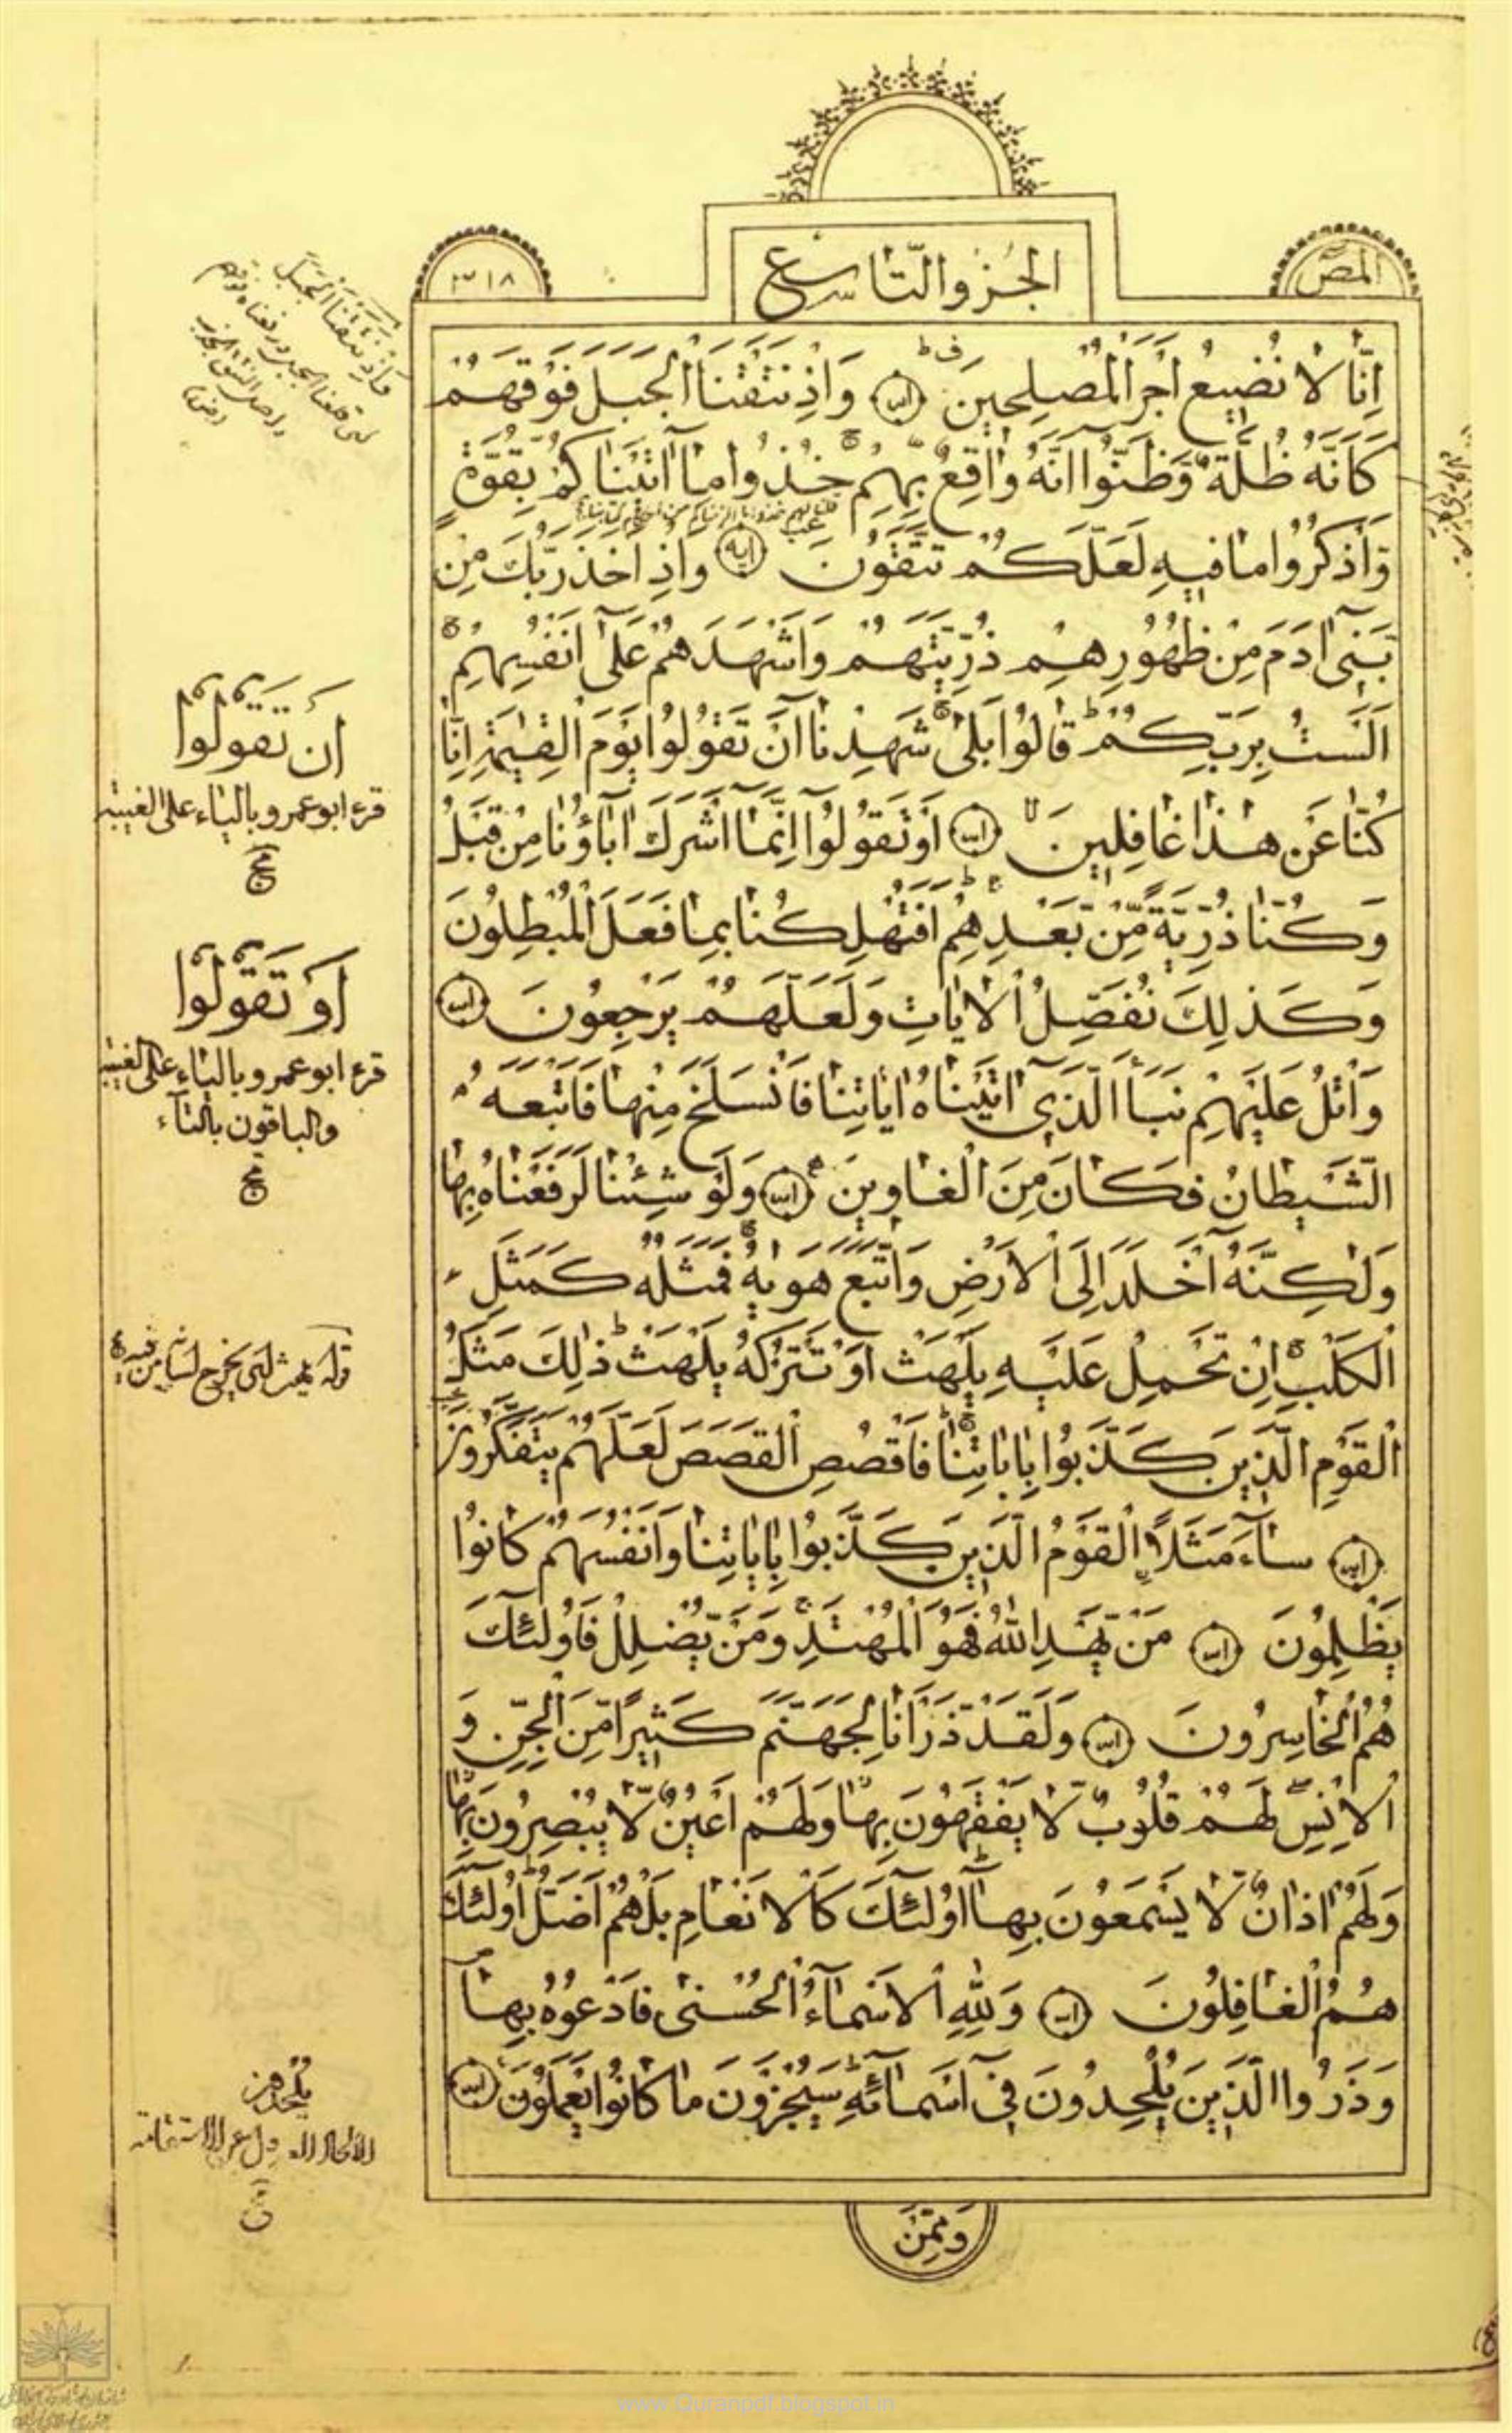 المص
الجزو التاسع
٣١٨
اِنَّا لَا نُضِيعُ اَجْرَ الْمُصْلِحِينَ وَاِذْ نَتَقْنَا الْجَبَلَ فَوْقَهُمْ
كَاَنَّهُ ظُلَّةٌ وَظَنُّوا اَنَّهُ وَاقِعٌ بِهِمْ خُذُوا مَا اٰتَيْنَاكُمْ بِقُوَّةٍ
وَاذْكُرُوا مَا فِيهِ لَعَلَّكُمْ تَتَّقُونَ وَاِذْ اَخَذَ رَبُّكَ مِنْ
بَنِىٓ اٰدَمَ مِنْ ظُهُورِهِمْ ذُرِّيَّتَهُمْ وَاَشْهَدَهُمْ عَلٰىٓ اَنْفُسِهِمْ
اَلَسْتُ بِرَبِّكُمْ قَالُوا بَلٰى شَهِدْنَا اَنْ تَقُولُوا يَوْمَ الْقِيٰمَةِ اِنَّا
كُنَّا عَنْ هٰذَا غَافِلِينَ اَوْ تَقُولُوا اِنَّمَا اَشْرَكَ اٰبَاؤُنَا مِنْ قَبْلُ
وَكُنَّا ذُرِّيَّةً مِّنْ بَعْدِهِمْ اَفَتُهْلِكُنَا بِمَا فَعَلَ الْمُبْطِلُونَ
وَكَذٰلِكَ نُفَصِّلُ الْاٰيَاتِ وَلَعَلَّهُمْ يَرْجِعُونَ
وَاتْلُ عَلَيْهِمْ نَبَأَ الَّذِىٓ اٰتَيْنَاهُ اٰيَاتِنَا فَانْسَلَخَ مِنْهَا فَاَتْبَعَهُ
الشَّيْطَانُ فَكَانَ مِنَ الْغَاوِينَ وَلَوْ شِئْنَا لَرَفَعْنَاهُ بِهَا
وَلٰكِنَّهُ اَخْلَدَ اِلَى الْاَرْضِ وَاتَّبَعَ هَوٰيهُ فَمَثَلُهُ كَمَثَلِ
الْكَلْبِ اِنْ تَحْمِلْ عَلَيْهِ يَلْهَثْ اَوْ تَتْرُكْهُ يَلْهَثْ ذٰلِكَ مَثَلُ
الْقَوْمِ الَّذِينَ كَذَّبُوا بِاٰيَاتِنَا فَاقْصُصِ الْقَصَصَ لَعَلَّهُمْ يَتَفَكَّرُونَ
سَاءَ مَثَلًا اِۨلْقَوْمُ الَّذِينَ كَذَّبُوا بِاٰيَاتِنَا وَاَنْفُسَهُمْ كَانُوا
يَظْلِمُونَ مَنْ يَهْدِ اللّٰهُ فَهُوَ الْمُهْتَدِى وَمَنْ يُضْلِلْ فَاُولٰئِكَ
هُمُ الْخَاسِرُونَ وَلَقَدْ ذَرَأْنَا لِجَهَنَّمَ كَثِيرًا مِّنَ الْجِنِّ وَ
الْاِنْسِ لَهُمْ قُلُوبٌ لَّا يَفْقَهُونَ بِهَا وَلَهُمْ اَعْيُنٌ لَّا يُبْصِرُونَ بِهَا
وَلَهُمْ اٰذَانٌ لَّا يَسْمَعُونَ بِهَا اُولٰئِكَ كَالْاَنْعَامِ بَلْ هُمْ اَضَلُّ اُولٰئِكَ
هُمُ الْغَافِلُونَ وَلِلّٰهِ الْاَسْمَاءُ الْحُسْنٰى فَادْعُوهُ بِهَا
وَذَرُوا الَّذِينَ يُلْحِدُونَ فِىٓ اَسْمَائِهِ سَيُجْزَوْنَ مَا كَانُوا يَعْمَلُونَ
وَمِمَّنْ
وَاِذْ نَتَقْنَا الْجَبَلَ
اَنْ تَقُولُوا
قرء ابو عمرو بالياء على الغيبة
اَوْ تَقُولُوا
قرء ابو عمرو بالياء على الغيبة
والباقون بالتاء
قوله يلهث اى يخرج لسانه من فيه
www.Quranpdf.blogspot.in